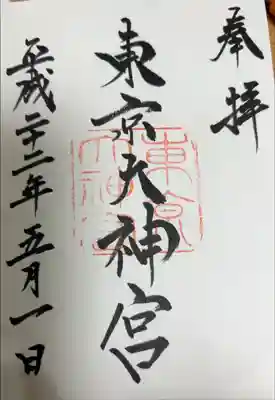 奉拝
東京大神宮
東京
大神宮
平成二十二年五月一日